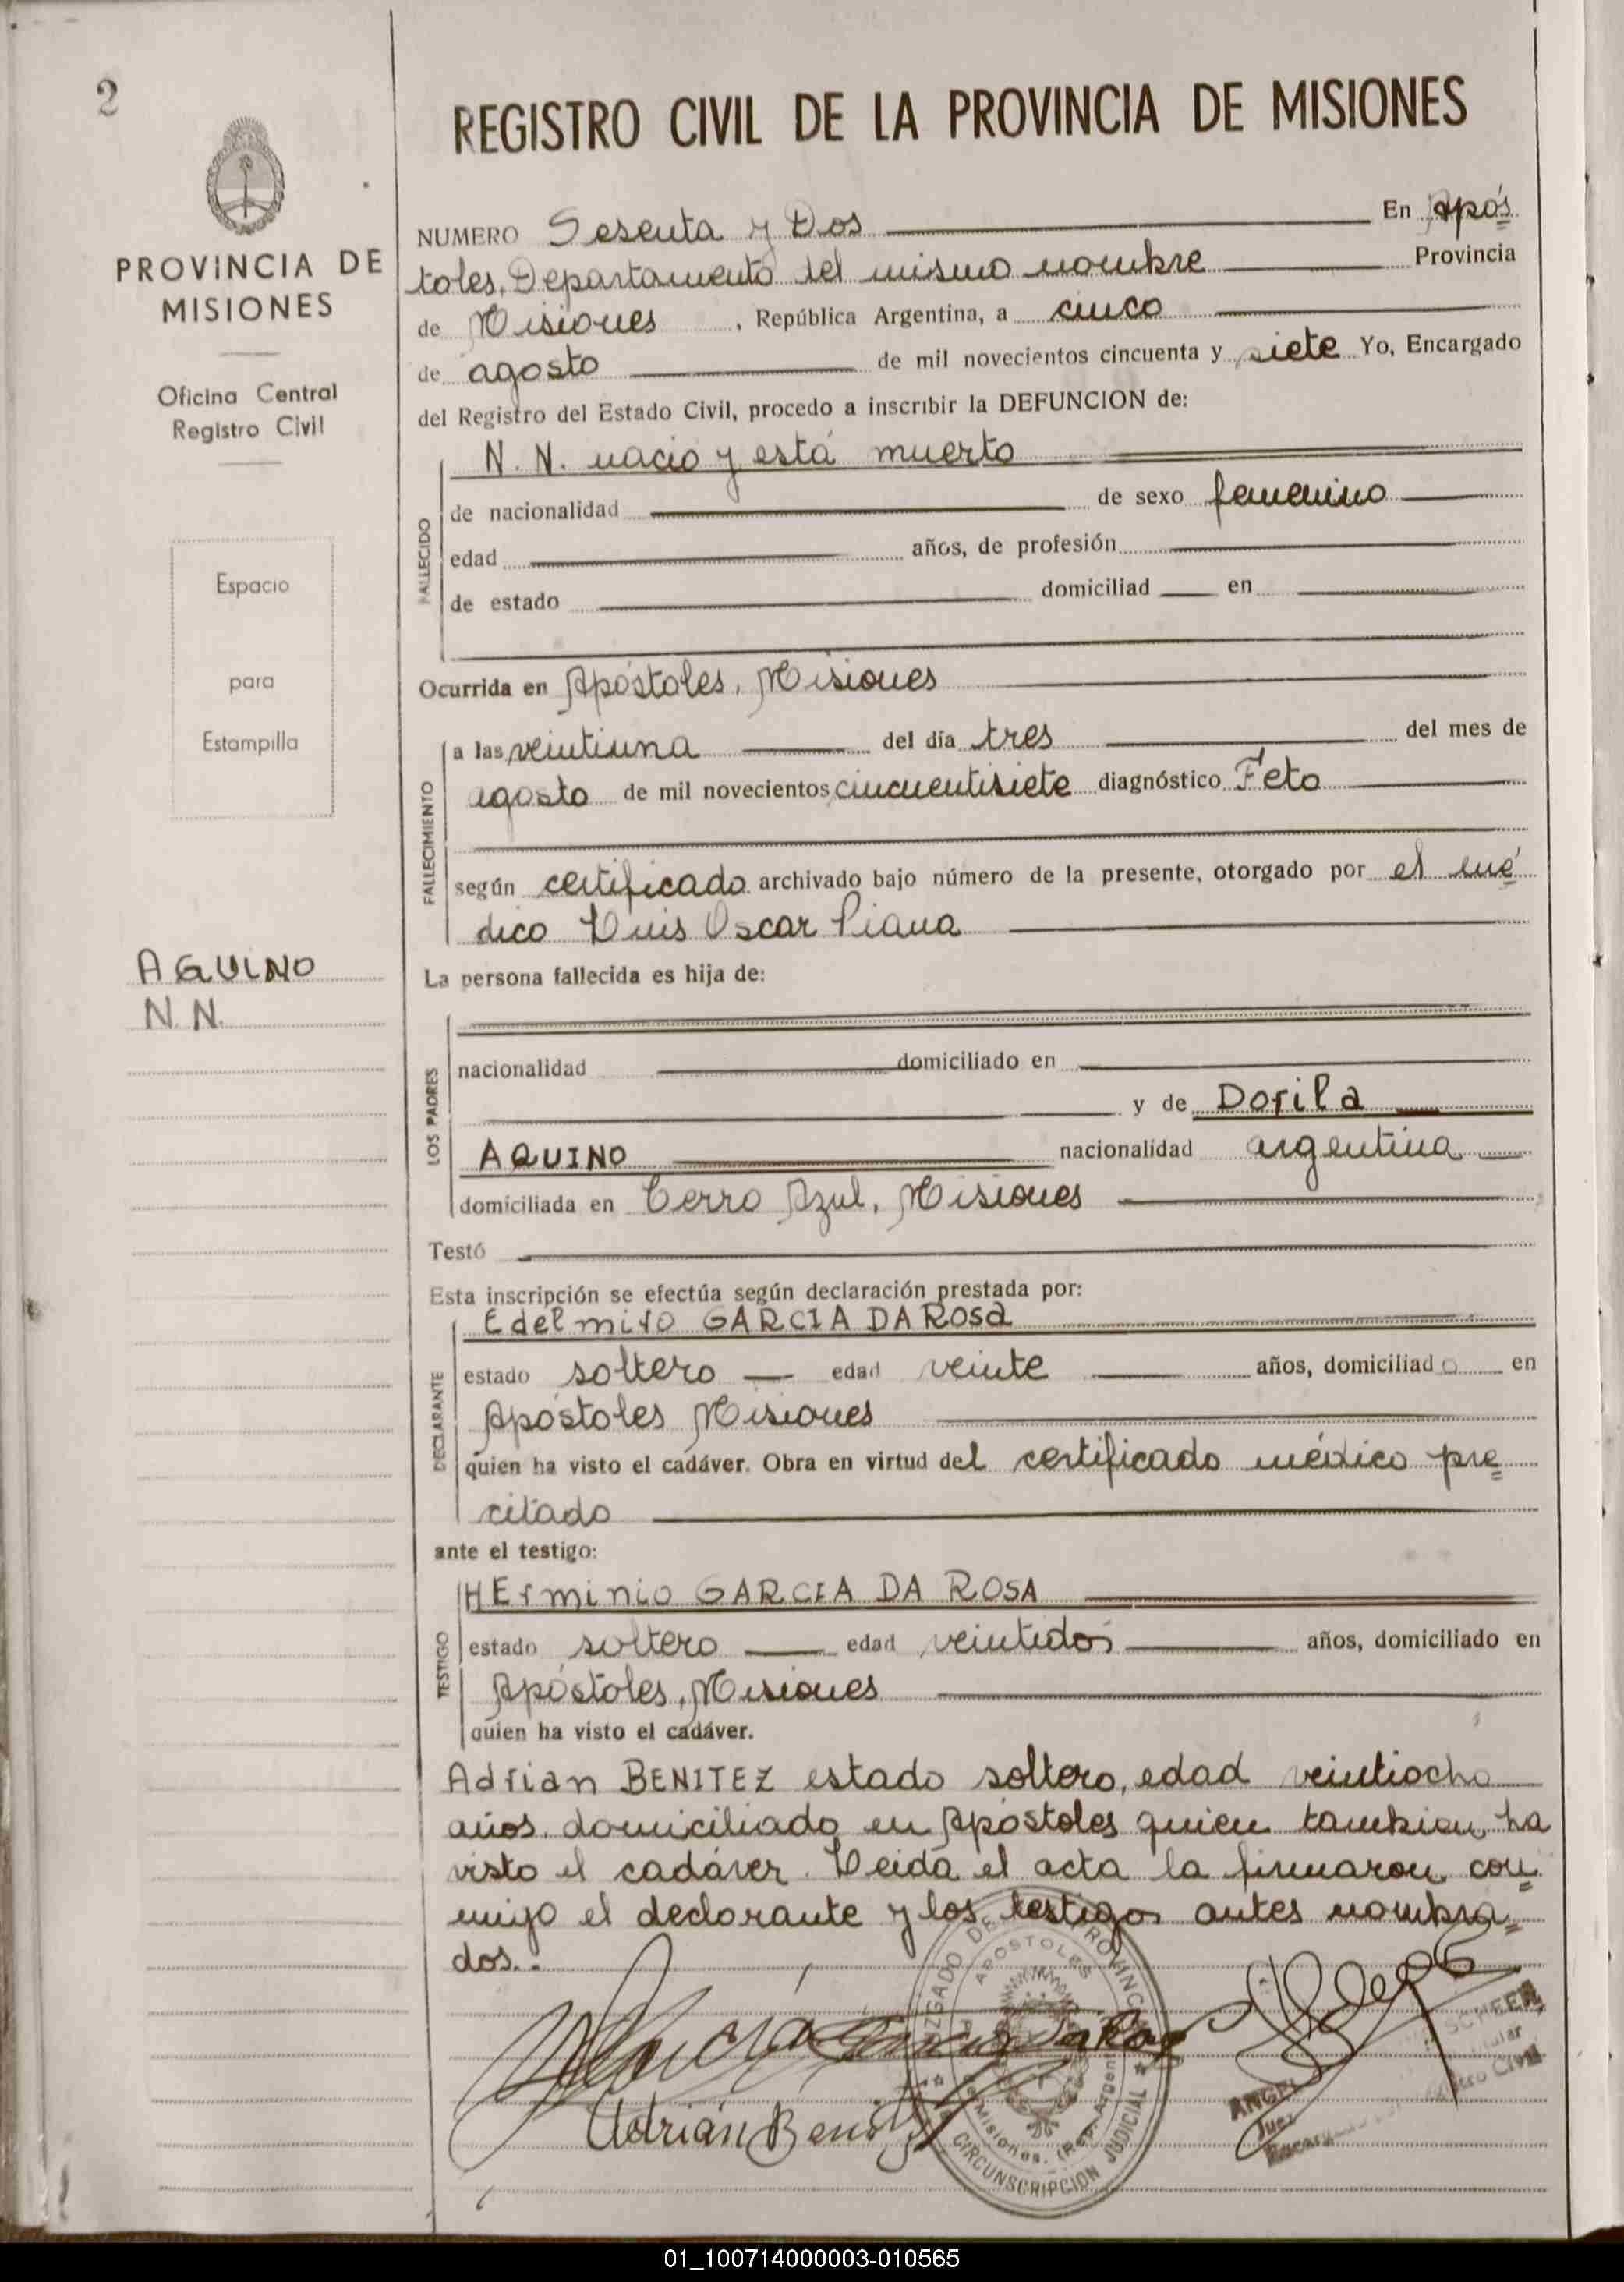 2
PROVINCIA DE
MISIONES
Oficina Central
Registro Civil
Espacio
para
Estampilla
AQUINO
N.N.
REGISTRO CIVIL DE LA PROVINCIA DE MISIONES
NUMERO Sesenta y Dos En Após
toles, Departamento del mismo nombre Provincia
de Misiones, República Argentina, a cinco
de agosto de mil novecientos cincuenta y siete Yo, Encargado
del Registro del Estado Civil, procedo a inscribir la DEFUNCION de:
FALLECIDO
N. N. nació y está muerto
de nacionalidad de sexo femenino
edad años, de profesión
de estado domiciliad en
Ocurrida en Apóstoles, Misiones
FALLECIMIENTO
a las veintiuna del día tres del mes de
agosto de mil novecientos cincuentisiete diagnóstico Feto
según certificado archivado bajo número de la presente, otorgado por el mé
dico Luis Oscar Piana
La persona fallecida es hija de:
LOS PADRES
nacionalidad domiciliado en
y de Dorila
AQUINO nacionalidad argentina
domiciliada en Cerro Azul, Misiones
Testó
Esta inscripción se efectúa según declaración prestada por:
DECLARANTE
Edelmiro GARCIA DA ROSA
estado soltero edad veinte años, domiciliado en
Apóstoles Misiones
quien ha visto el cadáver. Obra en virtud del certificado médico pre=
citado
ante el testigo:
TESTIGO
HErminio GARCIA DA ROSA
estado soltero edad veintidos años, domiciliado en
Apóstoles, Misiones
quien ha visto el cadáver.
Adrian BENITEZ estado soltero, edad veintiocho
años, domiciliado en Apóstoles quien tambien ha
visto el cadáver. Leida el acta la firmaron con=
migo el declarante y los testigos antes nombra=
dos.-
JUZGADO DE PROVINCIA
APOSTOLES
Misiones. (Rep. Argentina)
CIRCUNSCRIPCION JUDICIAL
Adrián Benitez
SCHEER
ANGEL
Juez
01_100714000003-010565